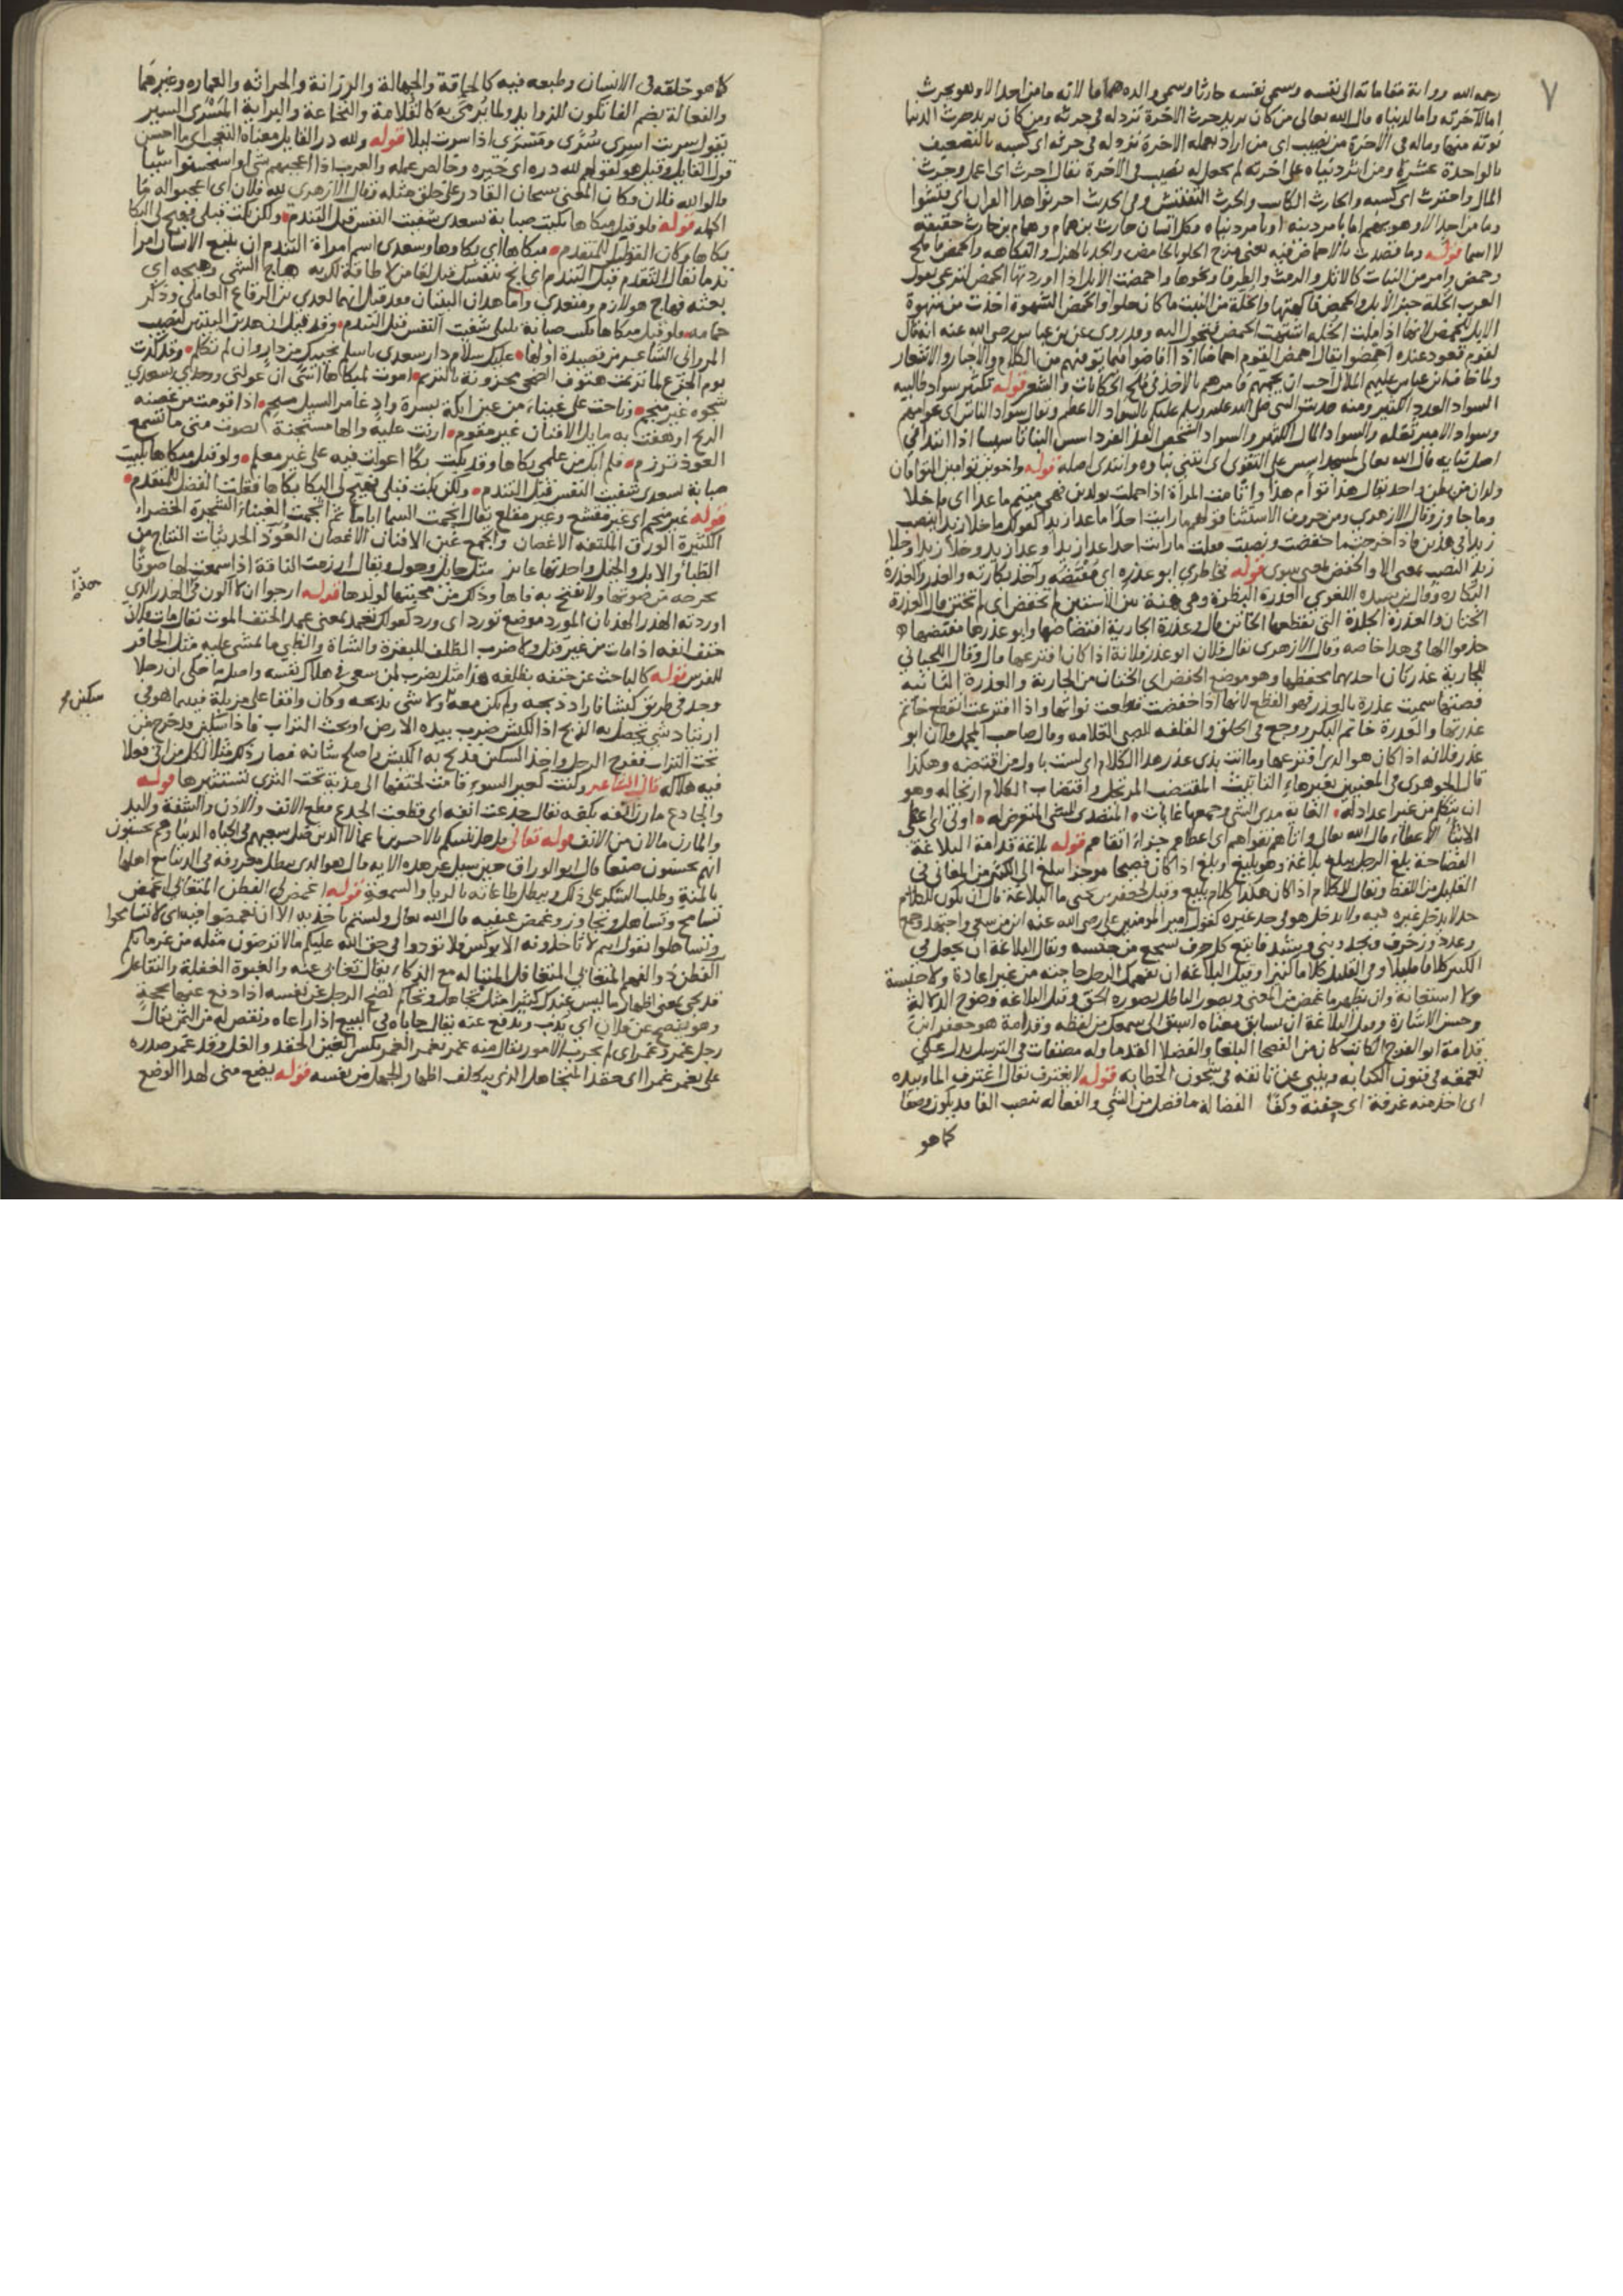 ٧
رحمه الله ورواية مقاماته الى نفسه وسمى نفسه حارثا وسمى والده هماما لانه ما من احد الا وهو يحرث
اما لآخرته واما لدنياه قال الله تعالى من كان يريد حرث الاخرة نزد له في حرثه ومن كان يريد حرث الدنيا
نوته منها وماله في الاخرة من نصيب اى من اراد بعمله الاخرة نزد له في حرثه اى كسبه بالتضعيف
بالواحدة عشرة ومن اثر دنياه على اخرته لم يجعل له نصيب في الاخرة يقال احرث اى اعمل وحرث
المال واحترث اى كسبه والحارث الكاسب والحرث التفتيش وفي الحديث احرثوا هذا القران اى فتشوا
وما من احد الا وهو يهم اما بامر دينه او بامر دنياه فكل انسان حارث بن همام وهمام بن حارث حقيقة
لا اسما قوله وما قصدت بالاحماض فيه يعنى مزج الحلو بالحامض والجد بالهزل والفكاهه والحمض ما ملح
وحمض وامر من النبات كالاثل والرمث والطرفا ونحوها واحمضت الابل اذا اوردتها الحمض لترعى تقول
العرب الخلة خبز الابل والحمض فاكهتها والخلة من النبت ما كان حلوا والحمض الشهوة اخذت من شهوة
الابل للحمض لانها اذا ملت الخلة اشتهت الحمض فتحول اليه وقد روى عن بن عباس رضى الله عنه انه قال
لقوم قعود عنده احمضوا يقال احمض القوم احماضا اذا افاضوا فيما يونسهم من الكلام والاخبار والاشعار
ولما خاف ابن عباس عليهم الملال احب ان يجمهم فامرهم بالاخذ في ملح الحكايات والشعر قوله تكثير سواد طالبيه
السواد العدد الكثير ومنه حديث النبى صلى الله عليه وسلم عليكم بالسواد الاعظم ويقال سواد الناس اى عوامهم
وسواد الامير ثقله والسواد المال الكثير والسواد الشخص
اصل بنايه قال الله تعالى لمسجد اسس على التقوى اى ابتنى بناوه وابتدى اصله قوله واخوين توامين التوامان
ولدان من بطن واحد يقال هذا توأم هذا واتأمت المراة اذا حملت بولدين فهى متيم ما عدا اى ما خلا
وما جاوز وقال الازهري ومن حروف الاستثنا قولهم ما رايت احدا ما عدا زيدا كقولك ما خلا زيدا بنصب
زيدا في هذين فاذا اخرجت ما خفضت ونصبت فقلت ما رايت احدا عدا زيدا وعدا زيد وخلا زيدا وخلا
زيد النصب بمعنى الا والخفض بمعنى سوى قوله بخاطري ابو عذره اى مقتضه واخذ بكارته والعذر والعذرة
البكارة وقال بن سيده اللغوي العذرة البظرة
الختان والعذرة الجلدة التى يقطعها الخاتن قال وعذرة الجارية افتضاضها وابو عذرها مفتضها
حذفوا الها في هذا خاصه وقال الازهرى يقال فلان ابو عذر فلانة اذا كان افترعها قال وقال اللحياني
للجارية عذرتان احديهما تخفضها وهو موضع الخفض اى الختان من الجارية والعذرة الثانيه
قضتها سميت عذرة بالعذر وهو القطع لانها اذا خفضت قطعت نواتها واذا افترعت انقطع خاتم
عذرتها والعذرة خاتم البكر ووجع في الحلق والقلفه للصبى القلامه وقال صاحب المجمل فلان ابو
عذر فلانه اذا كان هو الذى افترعها وما انت بذى عذر هذا الكلام اى لست باول من اقتضبه وهكذا
قال الجوهرى في المعنيين بغير هاء التانيث المقتضب المرتجل واقتضاب الكلام ارتجاله وهو
ان يتكلم من غير اعداد له الغايه مدى الشى وجمعها غايات المتصدى للشى المتعرض له اوتى اى اعطى
الايتا الاعطاء قال الله تعالى واتاهم تقواهم اى اعطاهم جزاء اتقاهم قوله بلاغة قدامة البلاغة
الفصاحة بلغ الرجل يبلغ بلاغة وهو بليغ وبلغ اذا كان فصيحا موجزا يبلغ الى الكثير من المعاني في
القليل من اللفظ ويقال للكلام اذا كان هكذا كلام بليغ وقيل لجعفر بن يحيى ما البلاغة قال ان يكون للكلام
حد لا يدخل غيره فيه ولا يدخل هو في حد غيره كقول امير المومنين على رضى الله عنه اين من سعى واجتهد وجمع
وعدد وزخرف ونجد وبنى وشيد فاتبع كل حرف بسجع من جنسه ويقال البلاغة ان يجعل في
الكثير كلاما قليلا وفي القليل كلاما كثيرا وقيل البلاغة ان تفهمك الرجل حاجته من غير اعادة ولا حبسة
ولا استعانة وان تظهر ما غمض من المعنى ويصور الباطل بصورة الحق وقيل البلاغه وضوح الدلالة
وحسن الاشارة وقيل البلاغة ان يسابق معناه اسبق الى سمعك من لفظه وقدامة هو جعفر ابن
قدامة ابو الفرج الكاتب كان من الفصحا البلغا والفضلا القدما وله مصنفات في الترسل يدل على
تعمقه في فنون الكتابه وينبي عن تانقه في شجون الخطابه قوله لا يغترف يقال اغترف الما وبيده
اى اخذ منه غرفة اى حفنة وكفا الفضالة ما فضل من الشى والفعاله بنصب الفا قد يكون وصفا
كما هو
كما هو خلقه في الانسان وطبعه فيه كالحماقة والجهالة والرزانة والحراثه والعماره وغيرهما
والفعالة بضم الفا تكون للزوايد ولما يرمى به كالقلامة والنخاعة والبراية المسرى السير
يقول سريت اسرى سرى ومسرى اذا سرت ليلا قوله ولله در القايل معناه التعجب اى ما احسن
قول القايل وقيل هو لقولهم لله دره اى خيره وخالص عمله والعرب اذا اعجبهم شى او استحسنوا شيا
قالوا لله فلان فكان المعنى سبحان القادر على خلق مثله وقال الازهرى لله فلان اى اعجبوا له ما
اكمله قوله ولو قبل مبكاها بكيت صبابة بسعدى شفيت النفس قبل التندم ولكن بكت قبلى فهيج لى البكا
بكاها وكان الفضل للمتقدم مبكاها اى بكاوها وسعدى اسم امراة التندم ان يتبع الانسان امرا
ندما يقال التقدم قبل التندم اى انج بنفسك قبل لقا من لا طاقة لك به هاج الشى وهيجه اى
بعثه فهاج هو لازم ومتعدى واما هذان البيتان فقد قيل انهما لعدى بن الرقاع العاملى وذكر
حمامه ولو قبل مبكاها بكيت صبابة بليلى شفيت النفس قبل التندم وقد قيل ان هذين البيتين لنصيب
المرواني الشاعر من قصيدة اولها عليك سلام دار سعدى باسلم
شجوه غير منجم وناحت على غيناء من عين ايكة
الريح اوهفت به مايل الافنان غير مقوم ارنت عليه والها مستجنة لصوت متى ما تسمع
العوذ ترزم فلم ابك من علمي بكاها وقد بكت بكا اعولت فيه على غير معلم ولو قبل مبكاها بكيت
صبابة بسعدى شفيت النفس قبل التندم ولكن بكت قبلى فهيج لى البكا بكاها فقلت الفضل للمتقدم
قوله غير منجم اى غير منقشع وغير مقلع يقال انجمت السما اياما ثم انجمت الغيناء الشجرة الخضراء
الكثيرة الورق الملتفه الاغصان والجمع غين الافنان الاغصان العوذ الحديثات النتاج من
الظبأ والابل والخيل واحدتها عايذ مثل حايل وحول ويقال ارزمت الناقة اذا سمعت لها صوتا
تخرجه من صوتها ولا تفتح به فاها وذلك من محبتها لولدها قوله ارجوا ان لا اكون في الهذر الذي
اوردته الهذر الهذيان المورد موضع تورد اى ورد كقولك تعمد بمعنى عمد الحتف الموت يقال مات فلان
حتف انفه اذا مات من غير قتل ولا ضرب الظلف للبقرة والشاة والظبى ما تمشى عليه مثل الحافر
للفرس قوله كالباحث عن حتفه بظلفه هذا مثل يضرب لمن سعى في هلاك نفسه واصله ما حكى ان رجلا
وجد في طريق كبشا فاراد ذبحه ولم يكن معه ولا شى يذبحه وكان واقفا على مزبلة فبينما هو في
ارتياد شى يحصل به الذبح اذ الكبش ضرب بيده الارض او بحث التراب فاذا سكين يخرج من
تحت التراب ففرح الرجل واخذ السكين فذبح به الكبش واصلح شانه فصار ذكره مثلا لكل من اتى فعلا
فيه هلاكه قال الشاعر وكنت كعير السوء قامت لحتفها الى مدية تحت الثرى تستثيرها قوله
والجادع مارن انفه بكفه يقال جدعت انفه اى قطعت الجدع قطع الانف والاذن والشفة واليد
والمارن ما لان من الانف قوله تعالى قل هل ننبئكم بالاخسرين اعمالا الذين ضل سعيهم في الحياة الدنيا وهم يحسبون
انهم يحسنون صنعا قال ابو الوراق حين سيل عن هذه الاية قال هو الذى يبطل معروفه في الدنيا مع اهلها
بالمنة وطلب الشكر على ذلك ويبطل طاعاته بالريا والسمعة قوله اغمض لى الفطن المتغابى اغمض
تسامح وتساهل وتجاوز وغمض عينيه قال الله تعالى ولستم باخذيه الا ان تغمضوا فيه اى لا تسامحوا
وتساهلوا يقول انتم لا تاخذونه الا بوكس فلا تودوا في حق الله عليكم ما لا ترضون مثله من غرمايكم
الفطن ذو الفهم المتغابي المتغافل المتباله مع الذكاء يقال تغابى عنه والغبوة الغفلة والتفاعل
قد يجى بمعنى اظهار ما ليس عندك كثيرا مثل تجاهل وتحالم نضح الرجل عن نفسه اذا دفع عنها بحجة
وهو ينضح عن فلان اى يذب ويدفع عنه يقال حاباه في البيع اذا راعاه ونقص له من الثمن يقال
رجل غمر وغمر اى لم يجرب الامور يقال منه غمر يغمر الغمر بكسر الغين الحقد والغل وقد غمر صدره
على يغمر غمرا اى حقد المتجاهل الذى يتكلف اظهار الجهل من نفسه قوله يضع منى لهذا الوضع